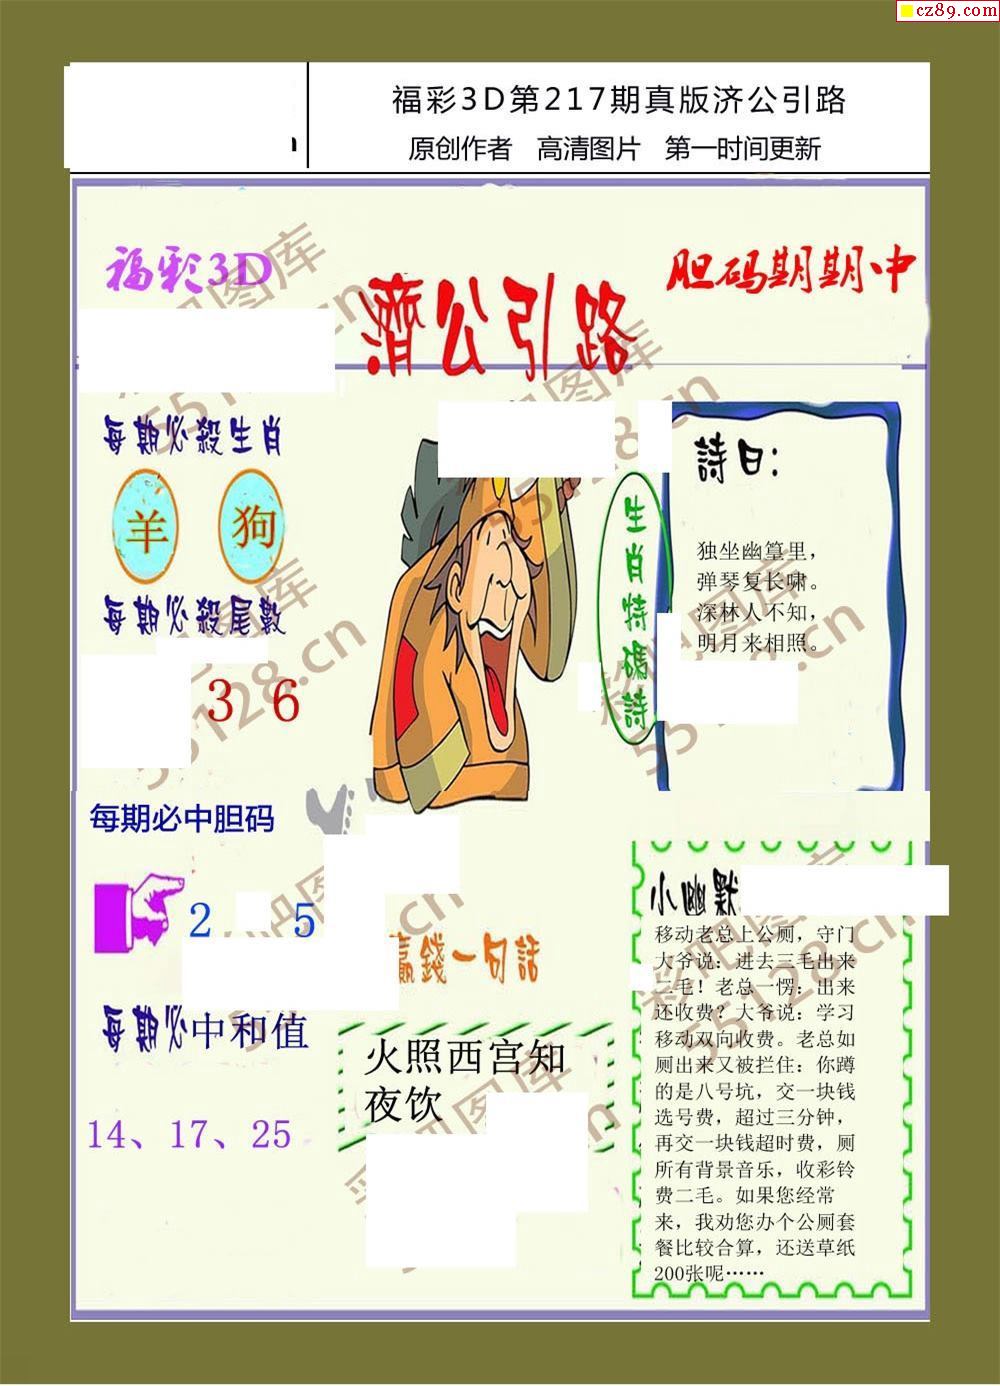 cz89.com
福彩3D第217期真版济公引路
原创作者 高清图片 第一时间更新
福彩3D
濟公引路
胆码期期中
每期必殺生肖
羊 狗
每期必殺尾數
3 6
每期必中胆码
2 5
每期必中和值
14、17、25
生肖特碼詩
詩曰:
独坐幽篁里，
弹琴复长啸。
深林人不知，
明月来相照。
贏錢一句話
火照西宫知
夜饮
小幽默
移动老总上公厕，守门
大爷说：进去三毛出来
二毛！老总一愣：出来
还收费？大爷说：学习
移动双向收费。老总如
厕出来又被拦住：你蹲
的是八号坑，交一块钱
选号费，超过三分钟，
再交一块钱超时费，厕
所有背景音乐，收彩铃
费二毛。如果您经常
来，我劝您办个公厕套
餐比较合算，还送草纸
200张呢……
彩吧图库
55128.cn